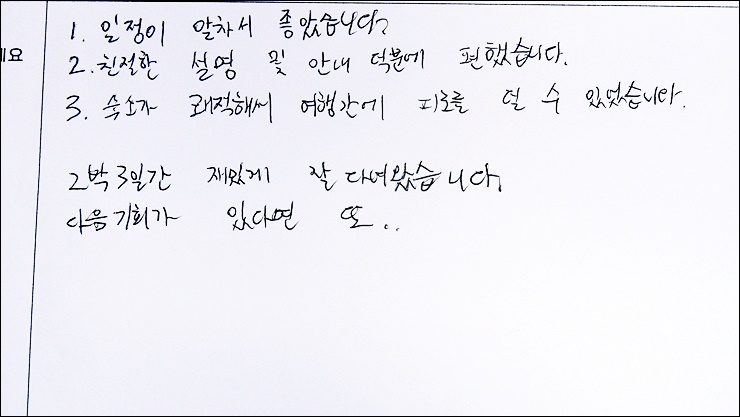 1. 일정이 알차서 좋았습니다.
2. 친절한 설명 및 안내 덕분에 편했습니다.
세요
3. 숙소가 쾌적해서 여행간에 피로를 덜 수 있었습니다.
2박 3일간 재밌게 잘 다녀왔습니다.
다음기회가 있다면 또..